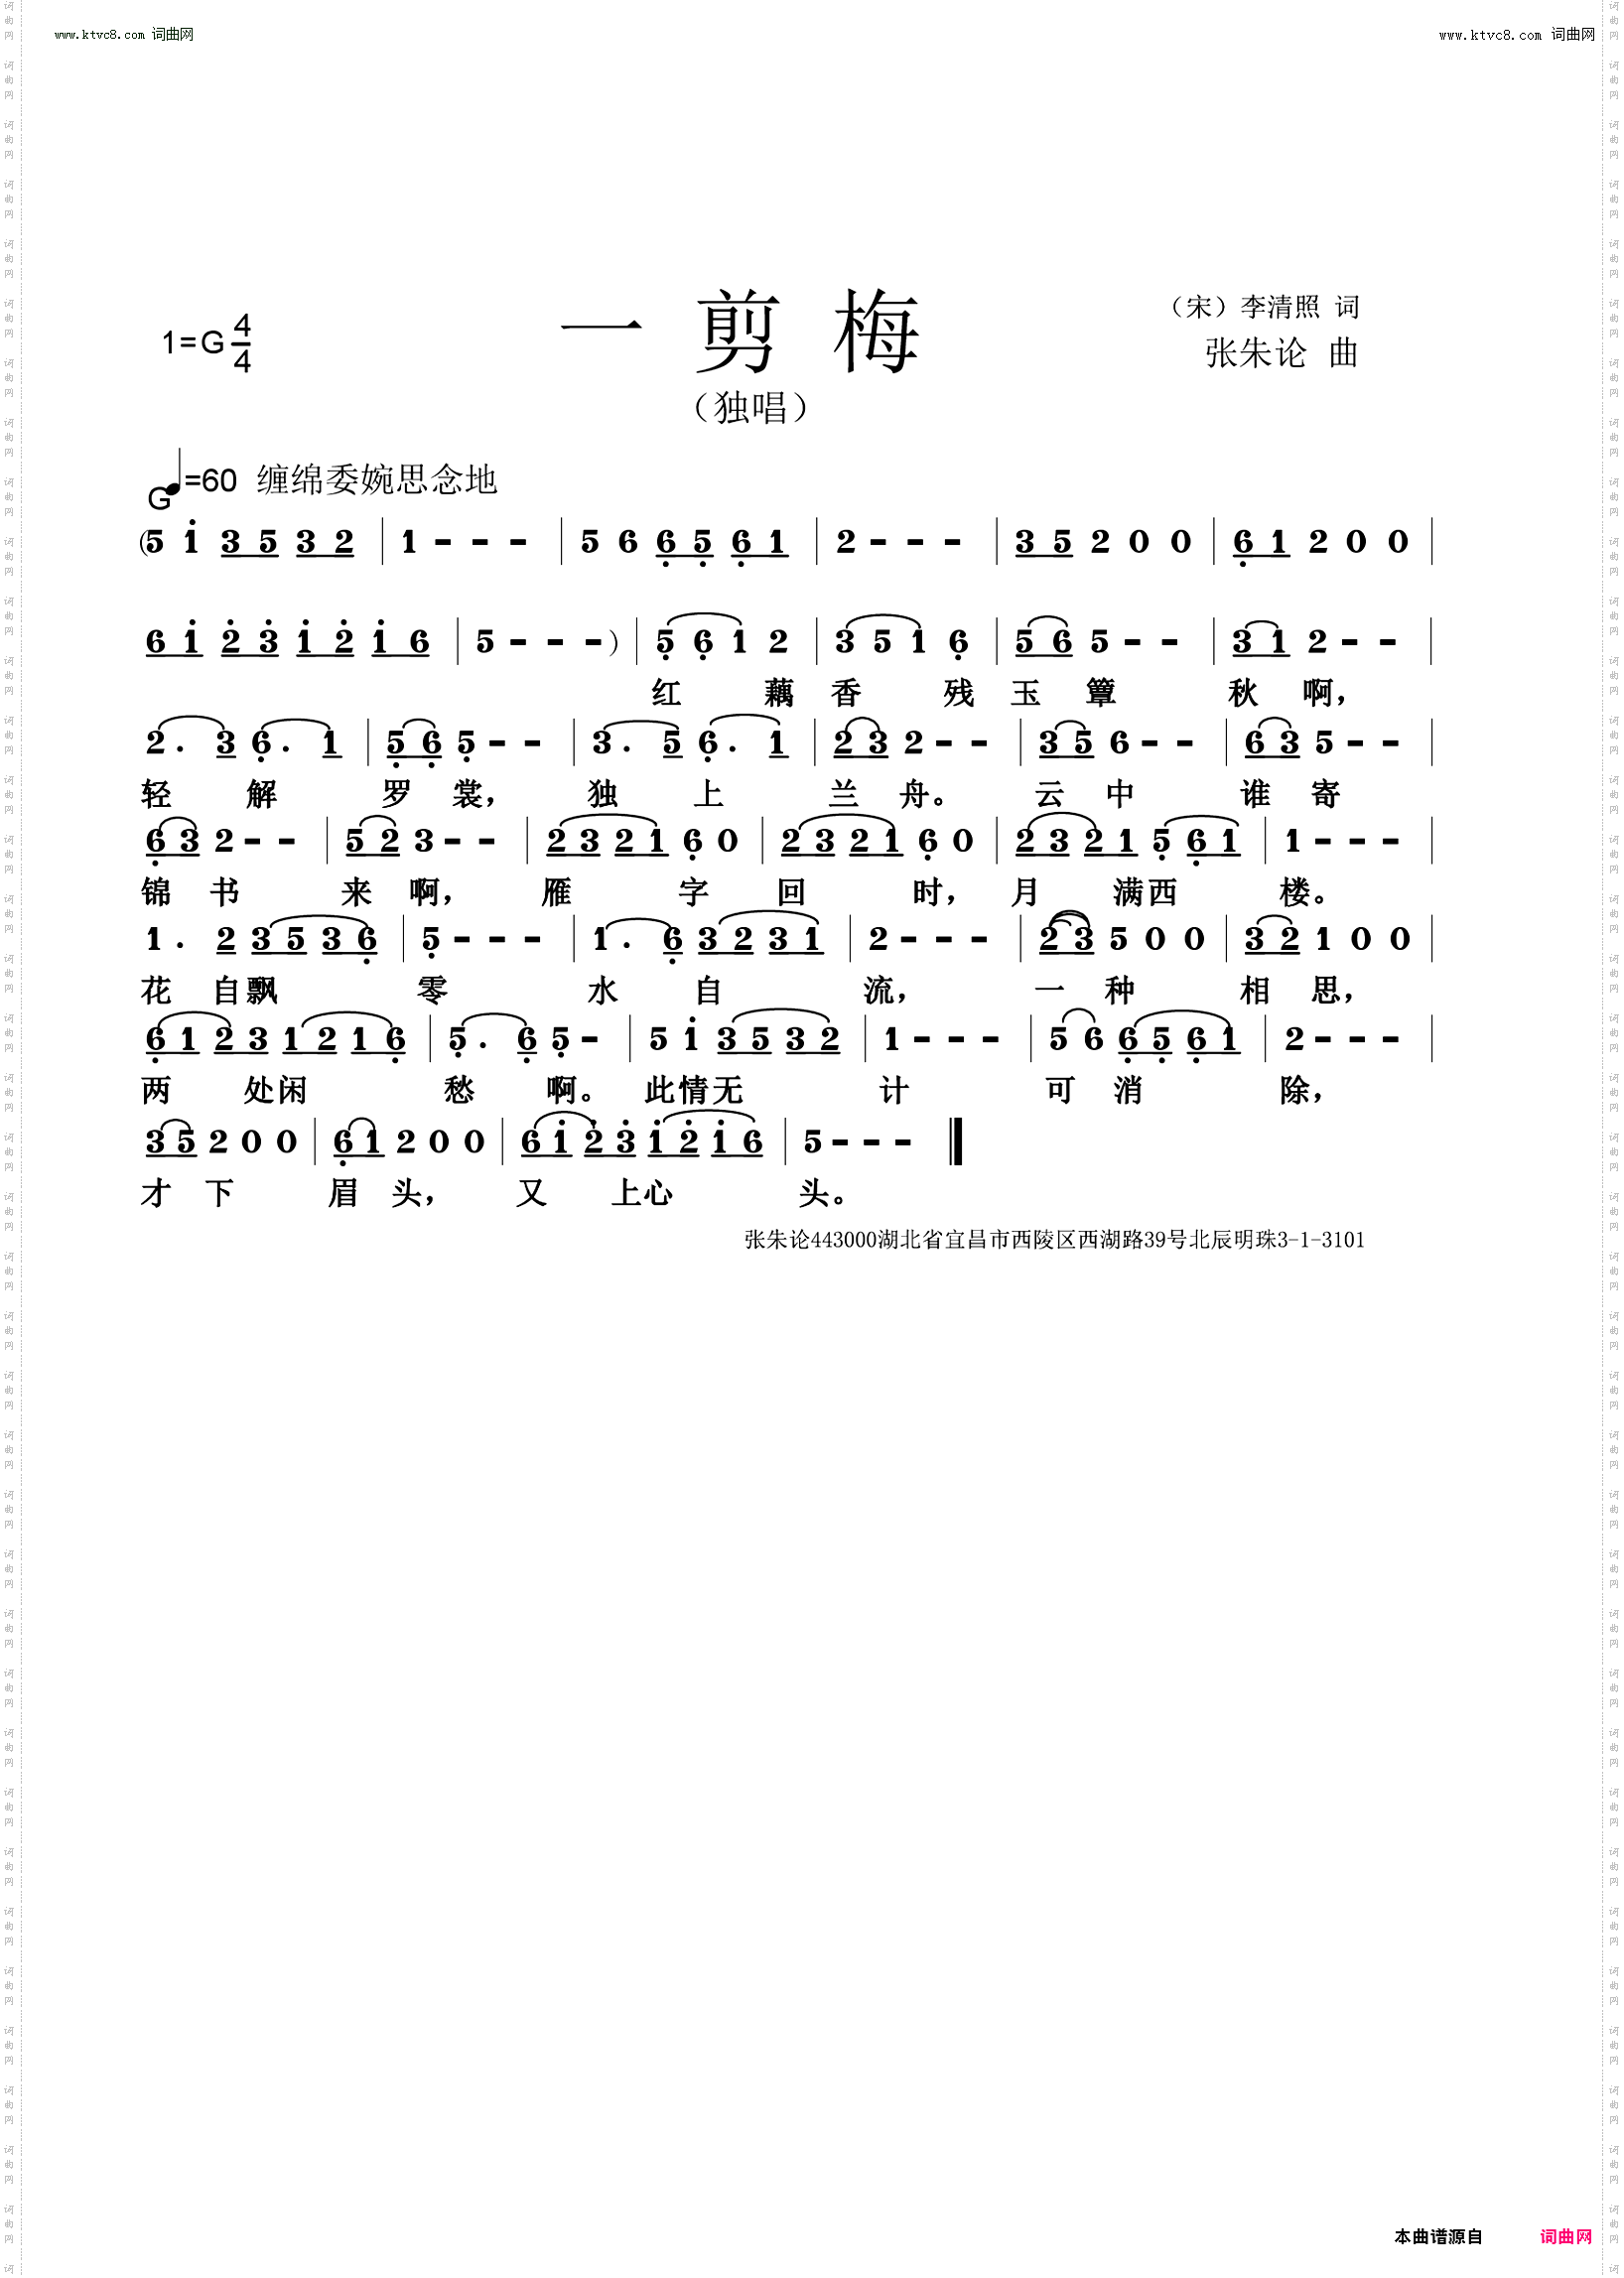 www.ktvc8.com 词曲网 www.ktvc8.com 词曲网
一 剪 梅
（宋）李清照 词
1=G 4/4
张朱论 曲
（独唱）
G ♩=60 缠绵委婉思念地
(5 1̇ 3 5 3 2 | 1 - - - | 5 6 6̣ 5̣ 6̣ 1 | 2 - - - | 3 5 2 0 0 | 6̣ 1 2 0 0 |
6 1̇ 2̇ 3̇ 1̇ 2̇ 1̇ 6 | 5 - - - ) | 5̣ 6̣ 1 2 | 3 5 1 6̣ | 5 6 5 - - | 3 1 2 - - |
红 藕 香 残 玉 簟 秋 啊，
2 . 3 6̣ . 1 | 5̣ 6̣ 5̣ - - | 3 . 5 6̣ . 1 | 2 3 2 - - | 3 5 6 - - | 6 3 5 - - |
轻 解 罗 裳， 独 上 兰 舟。 云 中 谁 寄
6̣ 3 2 - - | 5 2 3 - - | 2 3 2 1 6̣ 0 | 2 3 2 1 6̣ 0 | 2 3 2 1 5̣ 6̣ 1 | 1 - - - |
锦 书 来 啊， 雁 字 回 时， 月 满西 楼。
1 . 2 3 5 3 6̣ | 5̣ - - - | 1 . 6̣ 3 2 3 1 | 2 - - - | 2 3 5 0 0 | 3 2 1 0 0 |
花 自飘 零 水 自 流， 一 种 相 思，
6̣ 1 2 3 1 2 1 6̣ | 5̣ . 6̣ 5̣ - | 5 1̇ 3 5 3 2 | 1 - - - | 5 6 6̣ 5̣ 6̣ 1 | 2 - - - |
两 处闲 愁 啊。 此情无 计 可 消 除，
3 5 2 0 0 | 6̣ 1 2 0 0 | 6 1̇ 2̇ 3̇ 1̇ 2̇ 1̇ 6 | 5 - - - ‖
才 下 眉 头， 又 上心 头。
张朱论443000湖北省宜昌市西陵区西湖路39号北辰明珠3-1-3101
本曲谱源自 词曲网